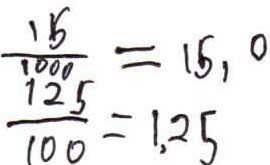 15/1000 = 15,0
125/100 = 1,25